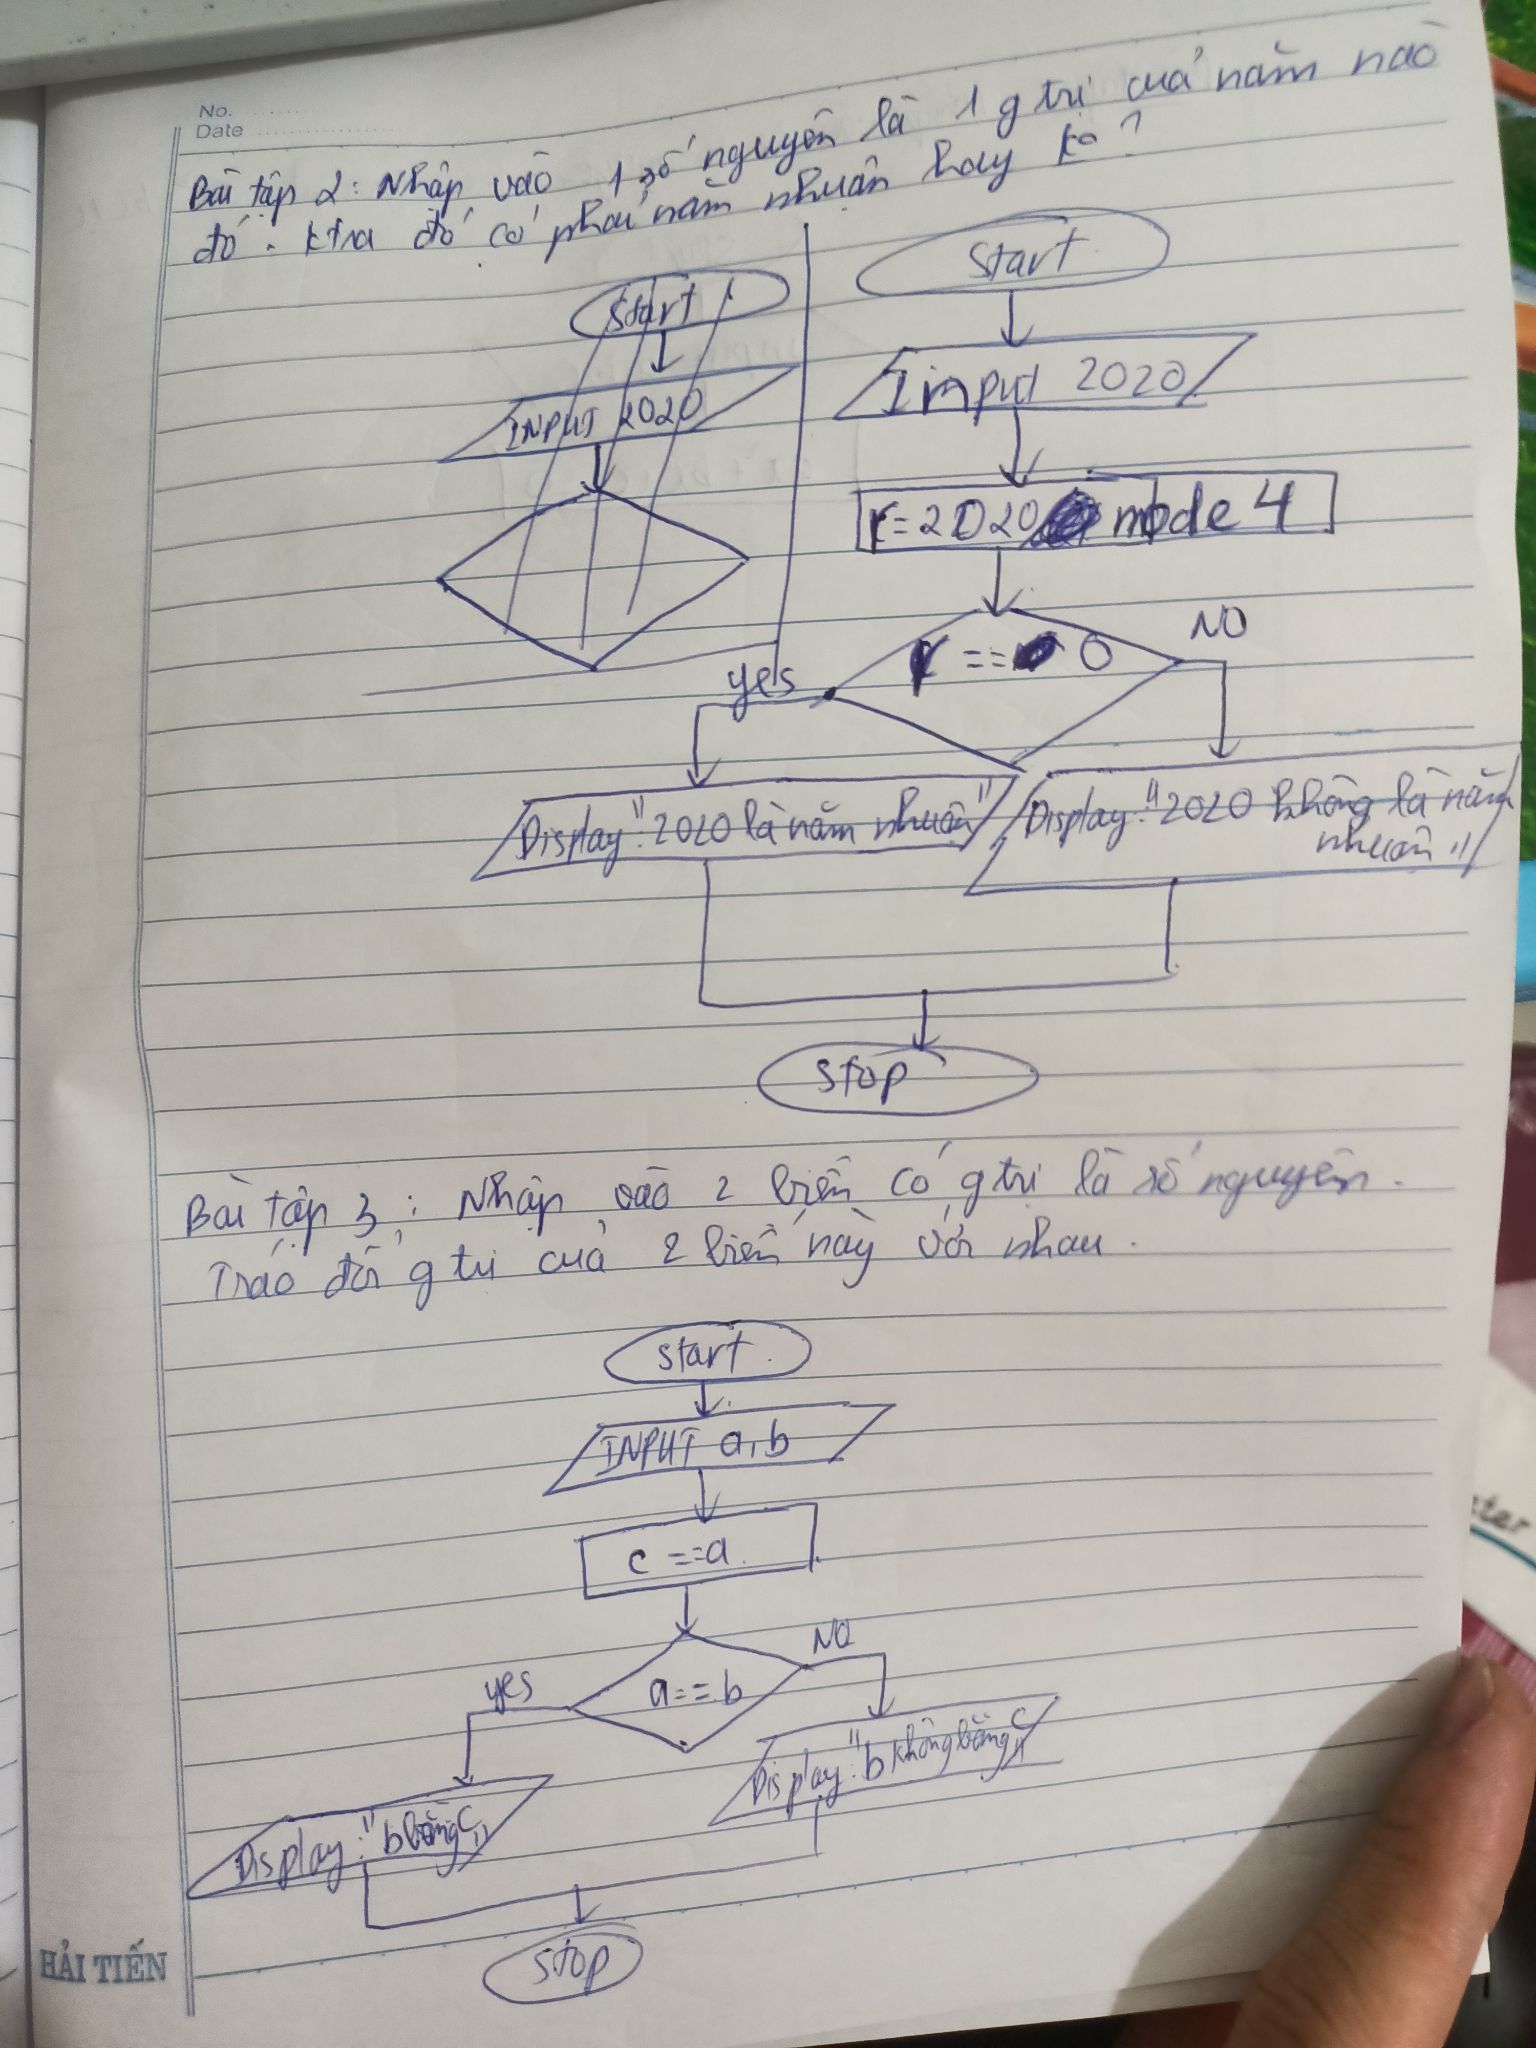 No.
Date
Bài tập 2: Nhập vào 1 số nguyên là 1 g trị của năm nào
đó. ktra đó có phải năm nhuận hay ko?
Start
INPUT 2020
Start
Input 2020
r = 2020 mode 4
r == 0
NO
yes
Display: "2020 là năm nhuận"
Display: "2020 không là năm
nhuận"
Stop
Bài tập 3: Nhập vào 2 biến có g trị là số nguyên.
Tráo đổi g trị của 2 biến này với nhau.
start
INPUT a, b
c == a
a == b
NO
yes
Display: "b không bằng c"
Display: "b bằng c"
stop
HẢI TIẾN